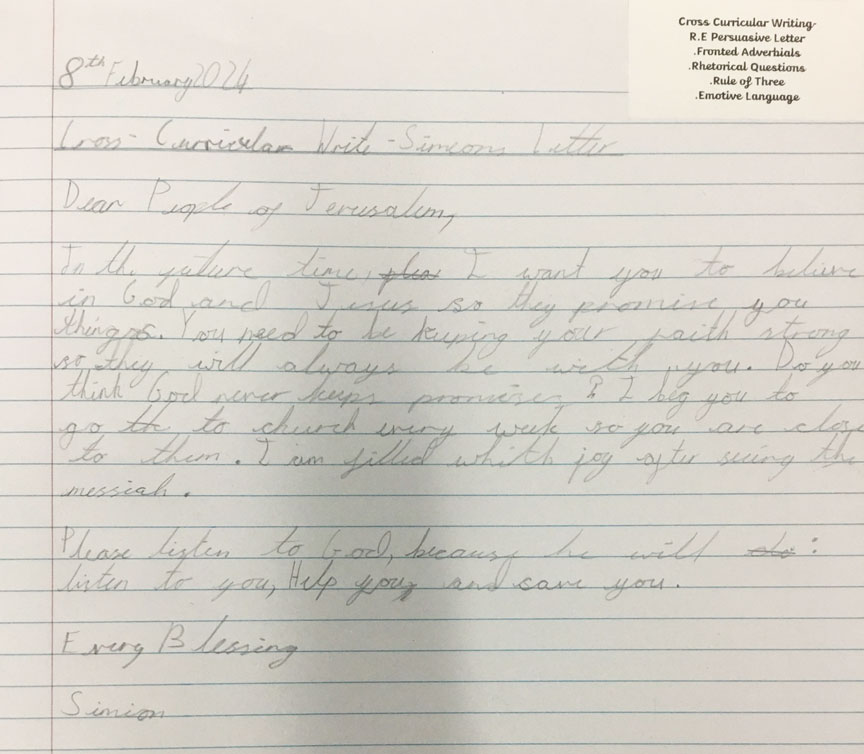 Cross Curricular Writing-
R.E Persuasive Letter
.Fronted Adverbials
.Rhetorical Questions
.Rule of Three
.Emotive Language
8th February 2024
Cross-Curricular Write-Simeons Letter
Dear People of Jerusalem,
In the future time, I want you to believe
in God and Jesus so they promise you
things. You need to be keeping your faith strong
so they will always be with you. Do you
think God never keeps promises? I beg you to
go to church every week so you are close
to them. I am filled whith joy after seeing the
messiah.
Please listen to God, because he will :
listen to you, Help you, and save you.
Every Blessing
Simion